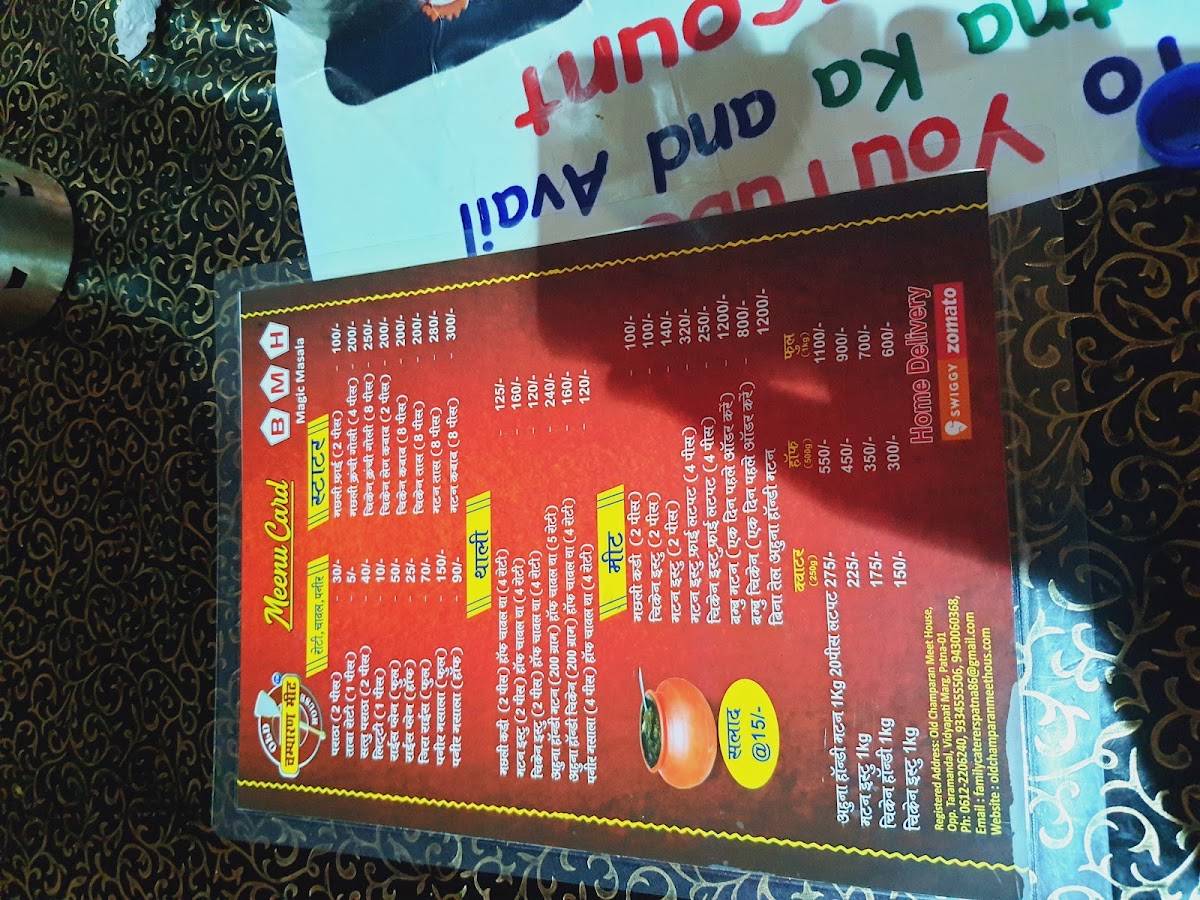 ount
Ka and Avail
To
OLD
चम्पारण मीट
HOUSE
Menu Card
B M H
Magic Masala
रोटी, चावल, पनीर
पराठा (2 पीस) - 30/-
तावा रोटी (1 पीस) - 5/-
सत्तु पराठा (2 पीस) - 40/-
लिट्टी (1 पीस) - 10/-
राईस प्लेन (फुल) - 50/-
राईस प्लेन (हॉफ) - 25/-
जिरा राईस (फुल) - 70/-
पनीर मसाला (फुल) - 150/-
पनीर मसाला (हॉफ) - 90/-
स्टाटर
मछली फ्राई (2 पीस) - 100/-
मछली क्रन्ची गोली (4 पीस) - 200/-
चिकेन क्रन्ची गोली (8 पीस) - 250/-
चिकेन लेग कबाब (2 पीस) - 200/-
चिकेन कबाब (8 पीस) - 200/-
चिकेन तास (8 पीस) - 200/-
मटन तास (8 पीस) - 280/-
मटन कबाब (8 पीस) - 300/-
थाली
मछली कढ़ी (2 पीस) हॉफ चावल या (4 रोटी) - 125/-
मटन इस्टु (2 पीस) हॉफ चावल या (4 रोटी) - 160/-
चिकेन इस्टु (2 पीस) हॉफ चावल या (4 रोटी) - 120/-
अहुना हॉन्डी मटन (200 ग्राम) हॉफ चावल या (5 रोटी) - 240/-
अहुना हॉन्डी चिकेन (200 ग्राम) हॉफ चावल या (4 रोटी) - 160/-
पनीर मसाला (4 पीस) हॉफ चावल या (4 रोटी) - 120/-
मीट
मछली कढी (2 पीस) - 100/-
चिकेन इस्टु (2 पीस) - 100/-
मटन इस्टु (2 पीस) - 140/-
मटन इस्टु फ्राई लटपट (4 पीस) - 320/-
चिकेन इस्टु फ्राई लटपट (4 पीस) - 250/-
बम्बु मटन (एक दिन पहले ऑडर करे) - 1200/-
बम्बु चिकेन (एक दिन पहले ऑडर करे) - 800/-
बिना तेल अहुना हॉन्डी मटन - 1200/-
सलाद
@15/-
क्वाटर (250g) हॉफ (500g) फुल (1kg)
अहुना हॉन्डी मटन 1Kg 20पीस लटपट 275/- 550/- 1100/-
मटन इस्टु 1kg 225/- 450/- 900/-
चिकेन हॉन्डी 1kg 175/- 350/- 700/-
चिकेन इस्टु 1kg 150/- 300/- 600/-
Registered Address: Old Champaran Meet House,
Opp. Taramandal, Vidyapati Marg, Patna-01
Ph: 0612-2206240, 9334555506, 9430060368,
Email : familycatererspatna86@gmail.com
Website : oldchamparanmeethous.com
Home Delivery
SWIGGY zomato